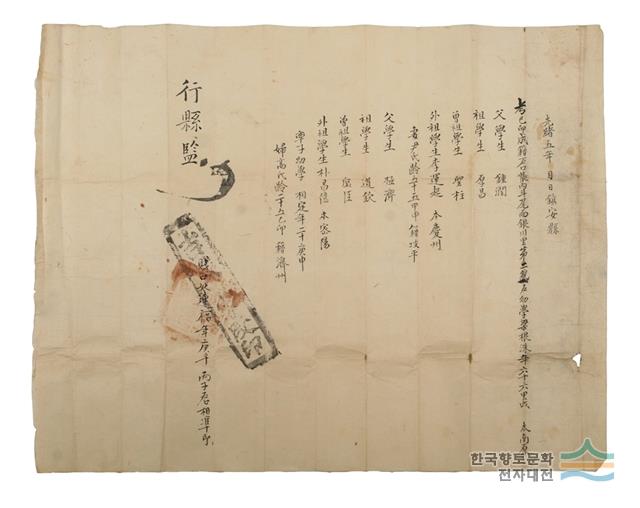 光緒五年 月 日 鎮安縣
考己卯成籍戶口帳內斗尾面銀川里第二統 戶幼學梁根洙年六十六甲戌 本南原
父學生 鍾潤
祖學生 厚昌
曾祖學生 聖柱
外祖學生李運起 本慶州
妻尹氏齡五十五 籍坡平
父學生 濟
祖學生 道欽
曾祖學生 臣
外祖學生朴昌信 本密陽
率子幼學 相定年二十庚申
婦高氏齡二十五乙卯 籍濟州
賤口 年庚午 丙子戶相準印
行縣監
한국향토문화
전자대전